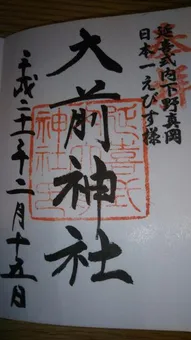 奉拝
延喜式内下野真岡
日本一えびす様
大前神社
延喜式
神社
平成二十二年二月十五日